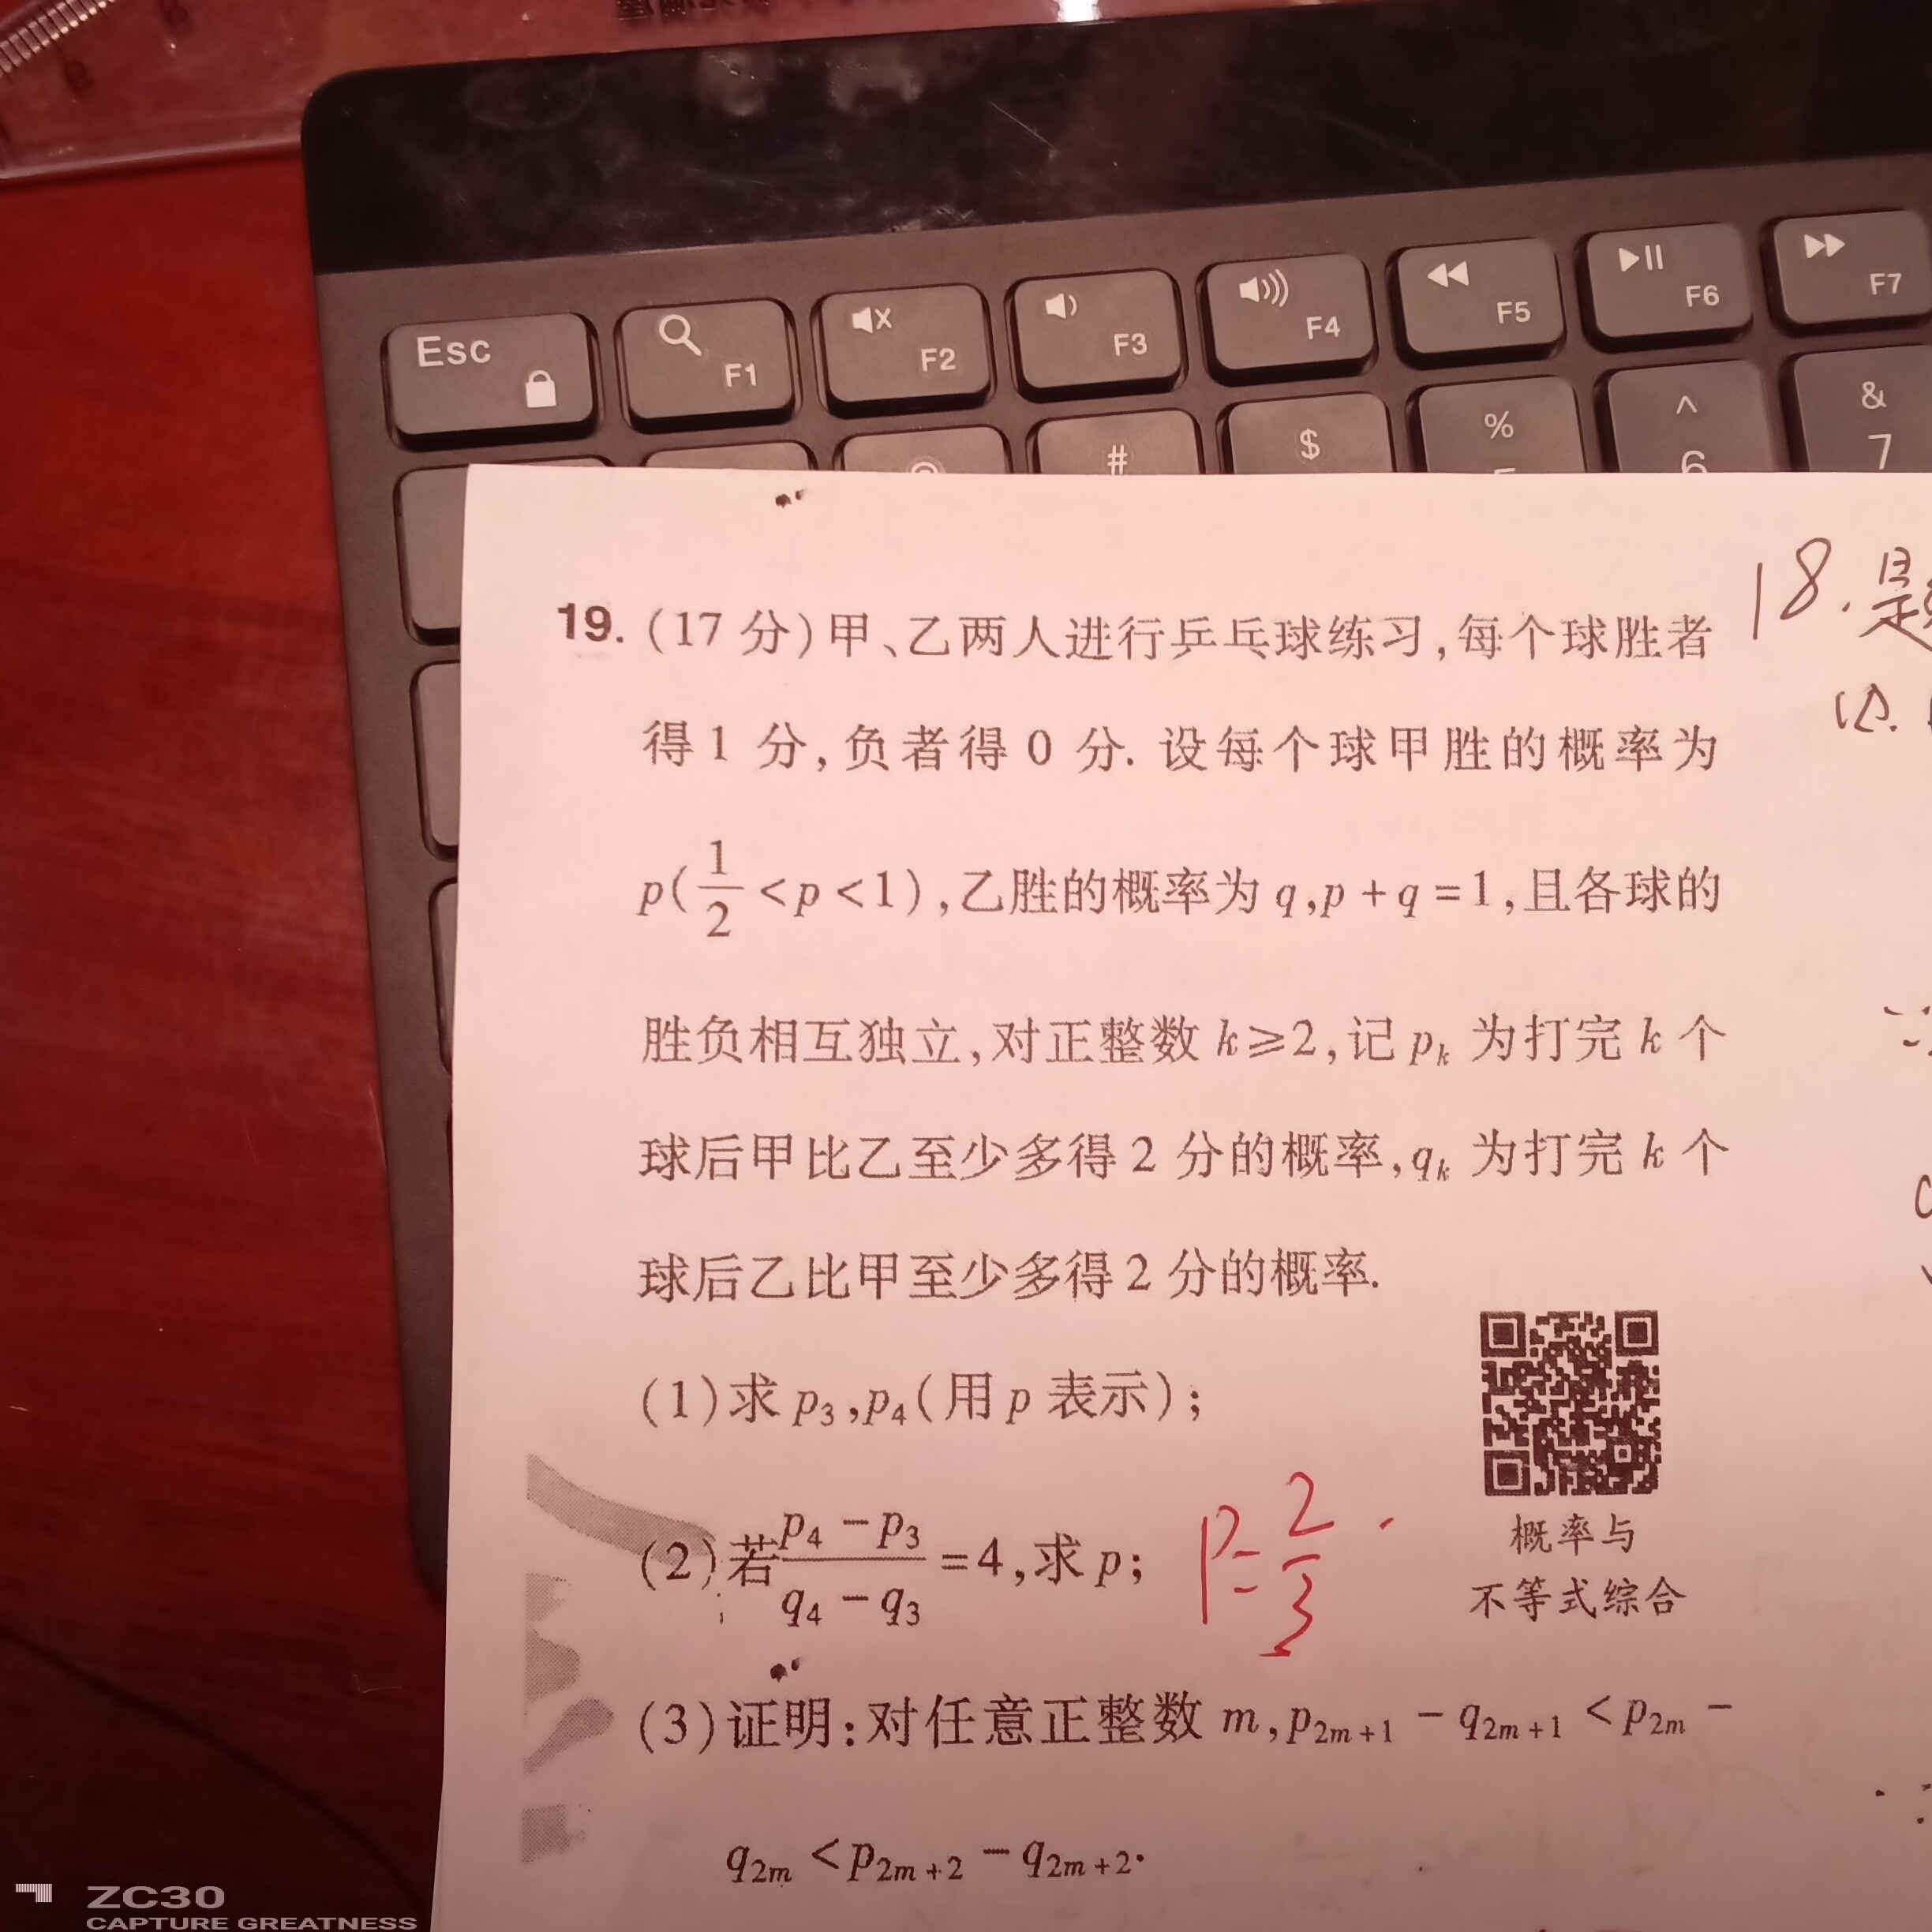 Esc
F1
F2
F3
F4
F5
F6
F7
#
$
%
^
6
&
7
19. (17 分)甲、乙两人进行乒乓球练习,每个球胜者
得 1 分,负者得 0 分. 设每个球甲胜的概率为
p(1/2 < p < 1),乙胜的概率为 q,p + q = 1,且各球的
胜负相互独立,对正整数 k ≥ 2,记 pₖ 为打完 k 个
球后甲比乙至少多得 2 分的概率,qₖ 为打完 k 个
球后乙比甲至少多得 2 分的概率.
(1)求 p₃,p₄(用 p 表示);
(2)若 (p₄ - p₃)/(q₄ - q₃) = 4,求 p;
p = 2/3
概率与
不等式综合
(3)证明:对任意正整数 m,p₂ₘ₊₁ - q₂ₘ₊₁ < p₂ₘ -
q₂ₘ < p₂ₘ₊₂ - q₂ₘ₊₂.
18.
ZC30
CAPTURE GREATNESS